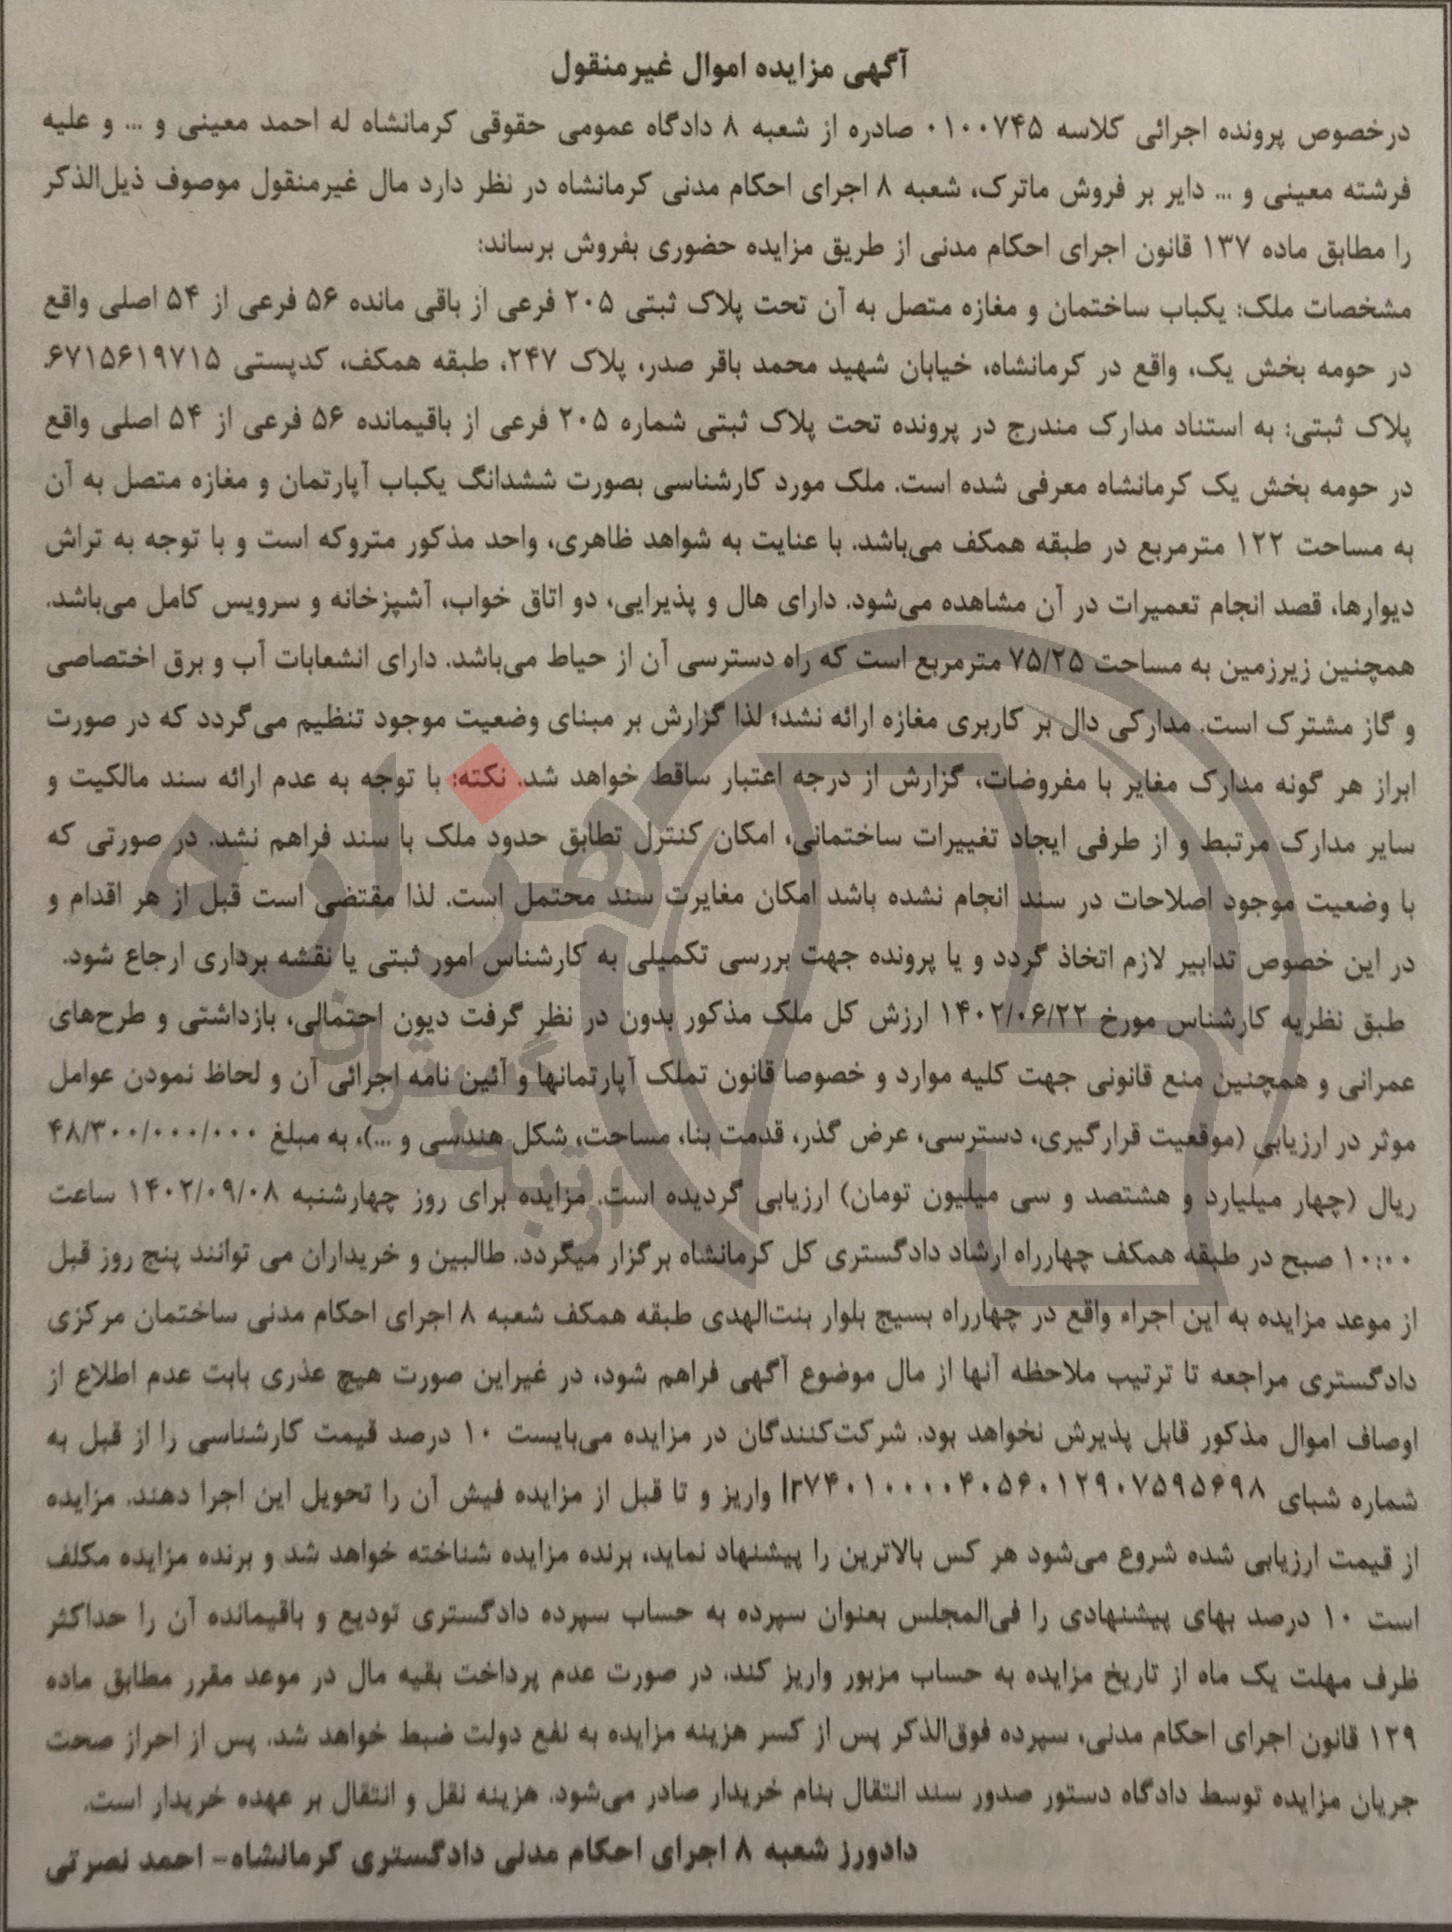 آگهی مزایده اموال غیرمنقول
درخصوص پرونده اجرائی کلاسه ۰۱۰۰۷۴۵ صادره از شعبه ۸ دادگاه عمومی حقوقی کرمانشاه له احمد معینی و ... و علیه
فرشته معینی و ... دایر بر فروش ماترک، شعبه ۸ اجرای احکام مدنی کرمانشاه در نظر دارد مال غیرمنقول موصوف ذیل‌الذکر
را مطابق ماده ۱۳۷ قانون اجرای احکام مدنی از طریق مزایده حضوری بفروش برساند:
مشخصات ملک: یکباب ساختمان و مغازه متصل به آن تحت پلاک ثبتی ۲۰۵ فرعی از باقی مانده ۵۶ فرعی از ۵۴ اصلی واقع
در حومه بخش یک، واقع در کرمانشاه، خیابان شهید محمد باقر صدر، پلاک ۲۴۷، طبقه همکف، کدپستی ۶۷۱۵۶۱۹۷۱۵.
پلاک ثبتی: به استناد مدارک مندرج در پرونده تحت پلاک ثبتی شماره ۲۰۵ فرعی از باقیمانده ۵۶ فرعی از ۵۴ اصلی واقع
در حومه بخش یک کرمانشاه معرفی شده است. ملک مورد کارشناسی بصورت ششدانگ یکباب آپارتمان و مغازه متصل به آن
به مساحت ۱۲۲ مترمربع در طبقه همکف می‌باشد. با عنایت به شواهد ظاهری، واحد مذکور متروکه است و با توجه به تراش
دیوارها، قصد انجام تعمیرات در آن مشاهده می‌شود. دارای هال و پذیرایی، دو اتاق خواب، آشپزخانه و سرویس کامل می‌باشد.
همچنین زیرزمین به مساحت ۷۵/۲۵ مترمربع است که راه دسترسی آن از حیاط می‌باشد. دارای انشعابات آب و برق اختصاصی
و گاز مشترک است. مدارکی دال بر کاربری مغازه ارائه نشد؛ لذا گزارش بر مبنای وضعیت موجود تنظیم می‌گردد که در صورت
ابراز هر گونه مدارک مغایر با مفروضات، گزارش از درجه اعتبار ساقط خواهد شد. نکته: با توجه به عدم ارائه سند مالکیت و
سایر مدارک مرتبط و از طرفی ایجاد تغییرات ساختمانی، امکان کنترل تطابق حدود ملک با سند فراهم نشد. در صورتی که
با وضعیت موجود اصلاحات در سند انجام نشده باشد امکان مغایرت سند محتمل است. لذا مقتضی است قبل از هر اقدام و
در این خصوص تدابیر لازم اتخاذ گردد و یا پرونده جهت بررسی تکمیلی به کارشناس امور ثبتی یا نقشه برداری ارجاع شود.
طبق نظریه کارشناس مورخ ۱۴۰۲/۰۶/۲۲ ارزش کل ملک مذکور بدون در نظر گرفت دیون احتمالی، بازداشتی و طرح‌های
عمرانی و همچنین منع قانونی جهت کلیه موارد و خصوصا قانون تملک آپارتمانها و آئین نامه اجرائی آن و لحاظ نمودن عوامل
موثر در ارزیابی (موقعیت قرارگیری، دسترسی، عرض گذر، قدمت بنا، مساحت، شکل هندسی و ...)، به مبلغ ۴۸/۳۰۰/۰۰۰/۰۰۰
ریال (چهار میلیارد و هشتصد و سی میلیون تومان) ارزیابی گردیده است. مزایده برای روز چهارشنبه ۱۴۰۲/۰۹/۰۸ ساعت
۱۰:۰۰ صبح در طبقه همکف چهارراه ارشاد دادگستری کل کرمانشاه برگزار میگردد. طالبین و خریداران می توانند پنج روز قبل
از موعد مزایده به این اجراء واقع در چهارراه بسیج بلوار بنت‌الهدی طبقه همکف شعبه ۸ اجرای احکام مدنی ساختمان مرکزی
دادگستری مراجعه تا ترتیب ملاحظه آنها از مال موضوع آگهی فراهم شود، در غیراین صورت هیچ عذری بابت عدم اطلاع از
اوصاف اموال مذکور قابل پذیرش نخواهد بود. شرکت‌کنندگان در مزایده می‌بایست ۱۰ درصد قیمت کارشناسی را از قبل به
شماره شبای Ir۷۴۰۱۰۰۰۰۴۰۵۶۰۱۲۹۰۷۵۹۵۶۹۸ واریز و تا قبل از مزایده فیش آن را تحویل این اجرا دهند. مزایده
از قیمت ارزیابی شده شروع می‌شود هر کس بالاترین را پیشنهاد نماید، برنده مزایده شناخته خواهد شد و برنده مزایده مکلف
است ۱۰ درصد بهای پیشنهادی را فی‌المجلس بعنوان سپرده به حساب سپرده دادگستری تودیع و باقیمانده آن را حداکثر
ظرف مهلت یک ماه از تاریخ مزایده به حساب مزبور واریز کند. در صورت عدم پرداخت بقیه مال در موعد مقرر مطابق ماده
۱۲۹ قانون اجرای احکام مدنی، سپرده فوق‌الذکر پس از کسر هزینه مزایده به نفع دولت ضبط خواهد شد. پس از احراز صحت
جریان مزایده توسط دادگاه دستور صدور سند انتقال بنام خریدار صادر می‌شود. هزینه نقل و انتقال بر عهده خریدار است.
دادورز شعبه ۸ اجرای احکام مدنی دادگستری کرمانشاه- احمد نصرتی